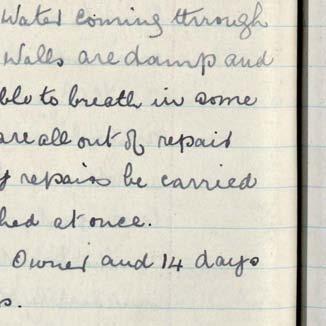 Water coming through
Walls are damp and
ble to breath in some
are all out of repair
y repairs be carried
hed at once.
Owner and 14 days
s.